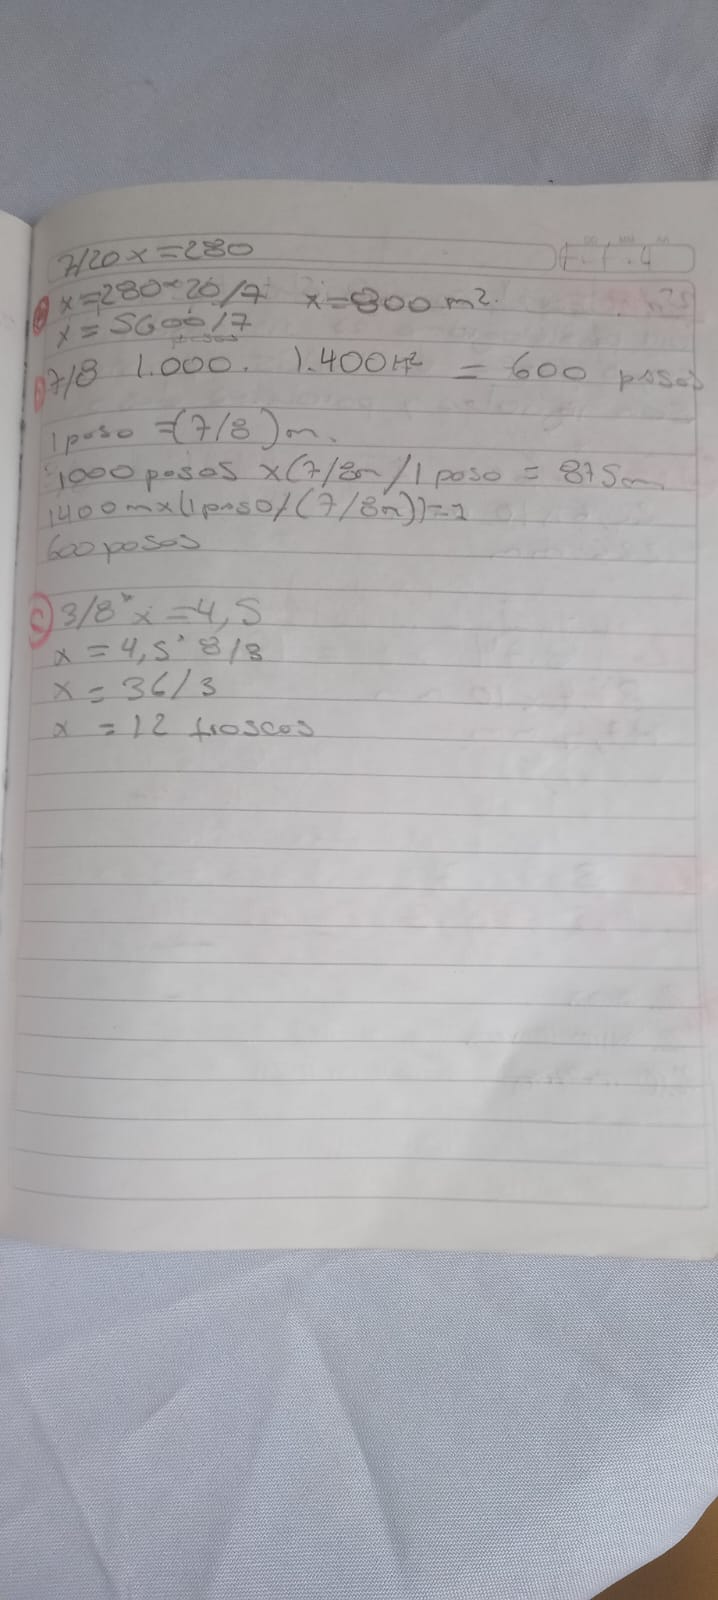 7/20 x = 280
x = 280 * 20/7 x = 800 m².
x = 5600/7
7/8 1.000. 1.400 = 600 pasos
1 paso = (7/8) m.
1000 pasos x (7/8m / 1 paso = 875m
1400 m x (1 paso / (7/8m)) =
600 pasos
C) 3/8 * x = 4,5
x = 4,5 * 8/3
x = 36/3
x = 12 frascos